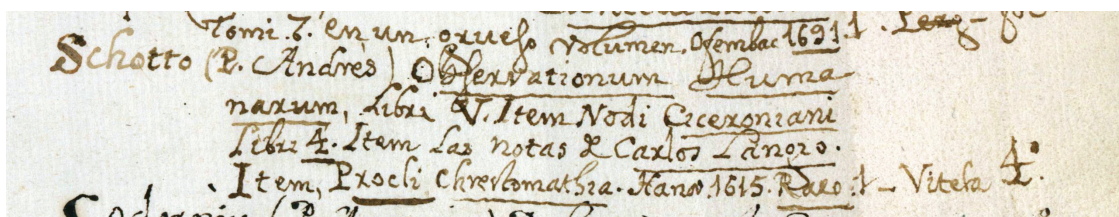 Tomi. 7. en un grueso volumen. Ofembac 1691. 1. Perg-
Schotto (P. Andres) Observationum Huma
narum, Libri V. Item Nodi Ciceroniani
Libri 4. Item Las notas de Carlos Langio.
Item, Procli Chrestomathia. Hano. 1615. Raro: 1 - Vitela 4º